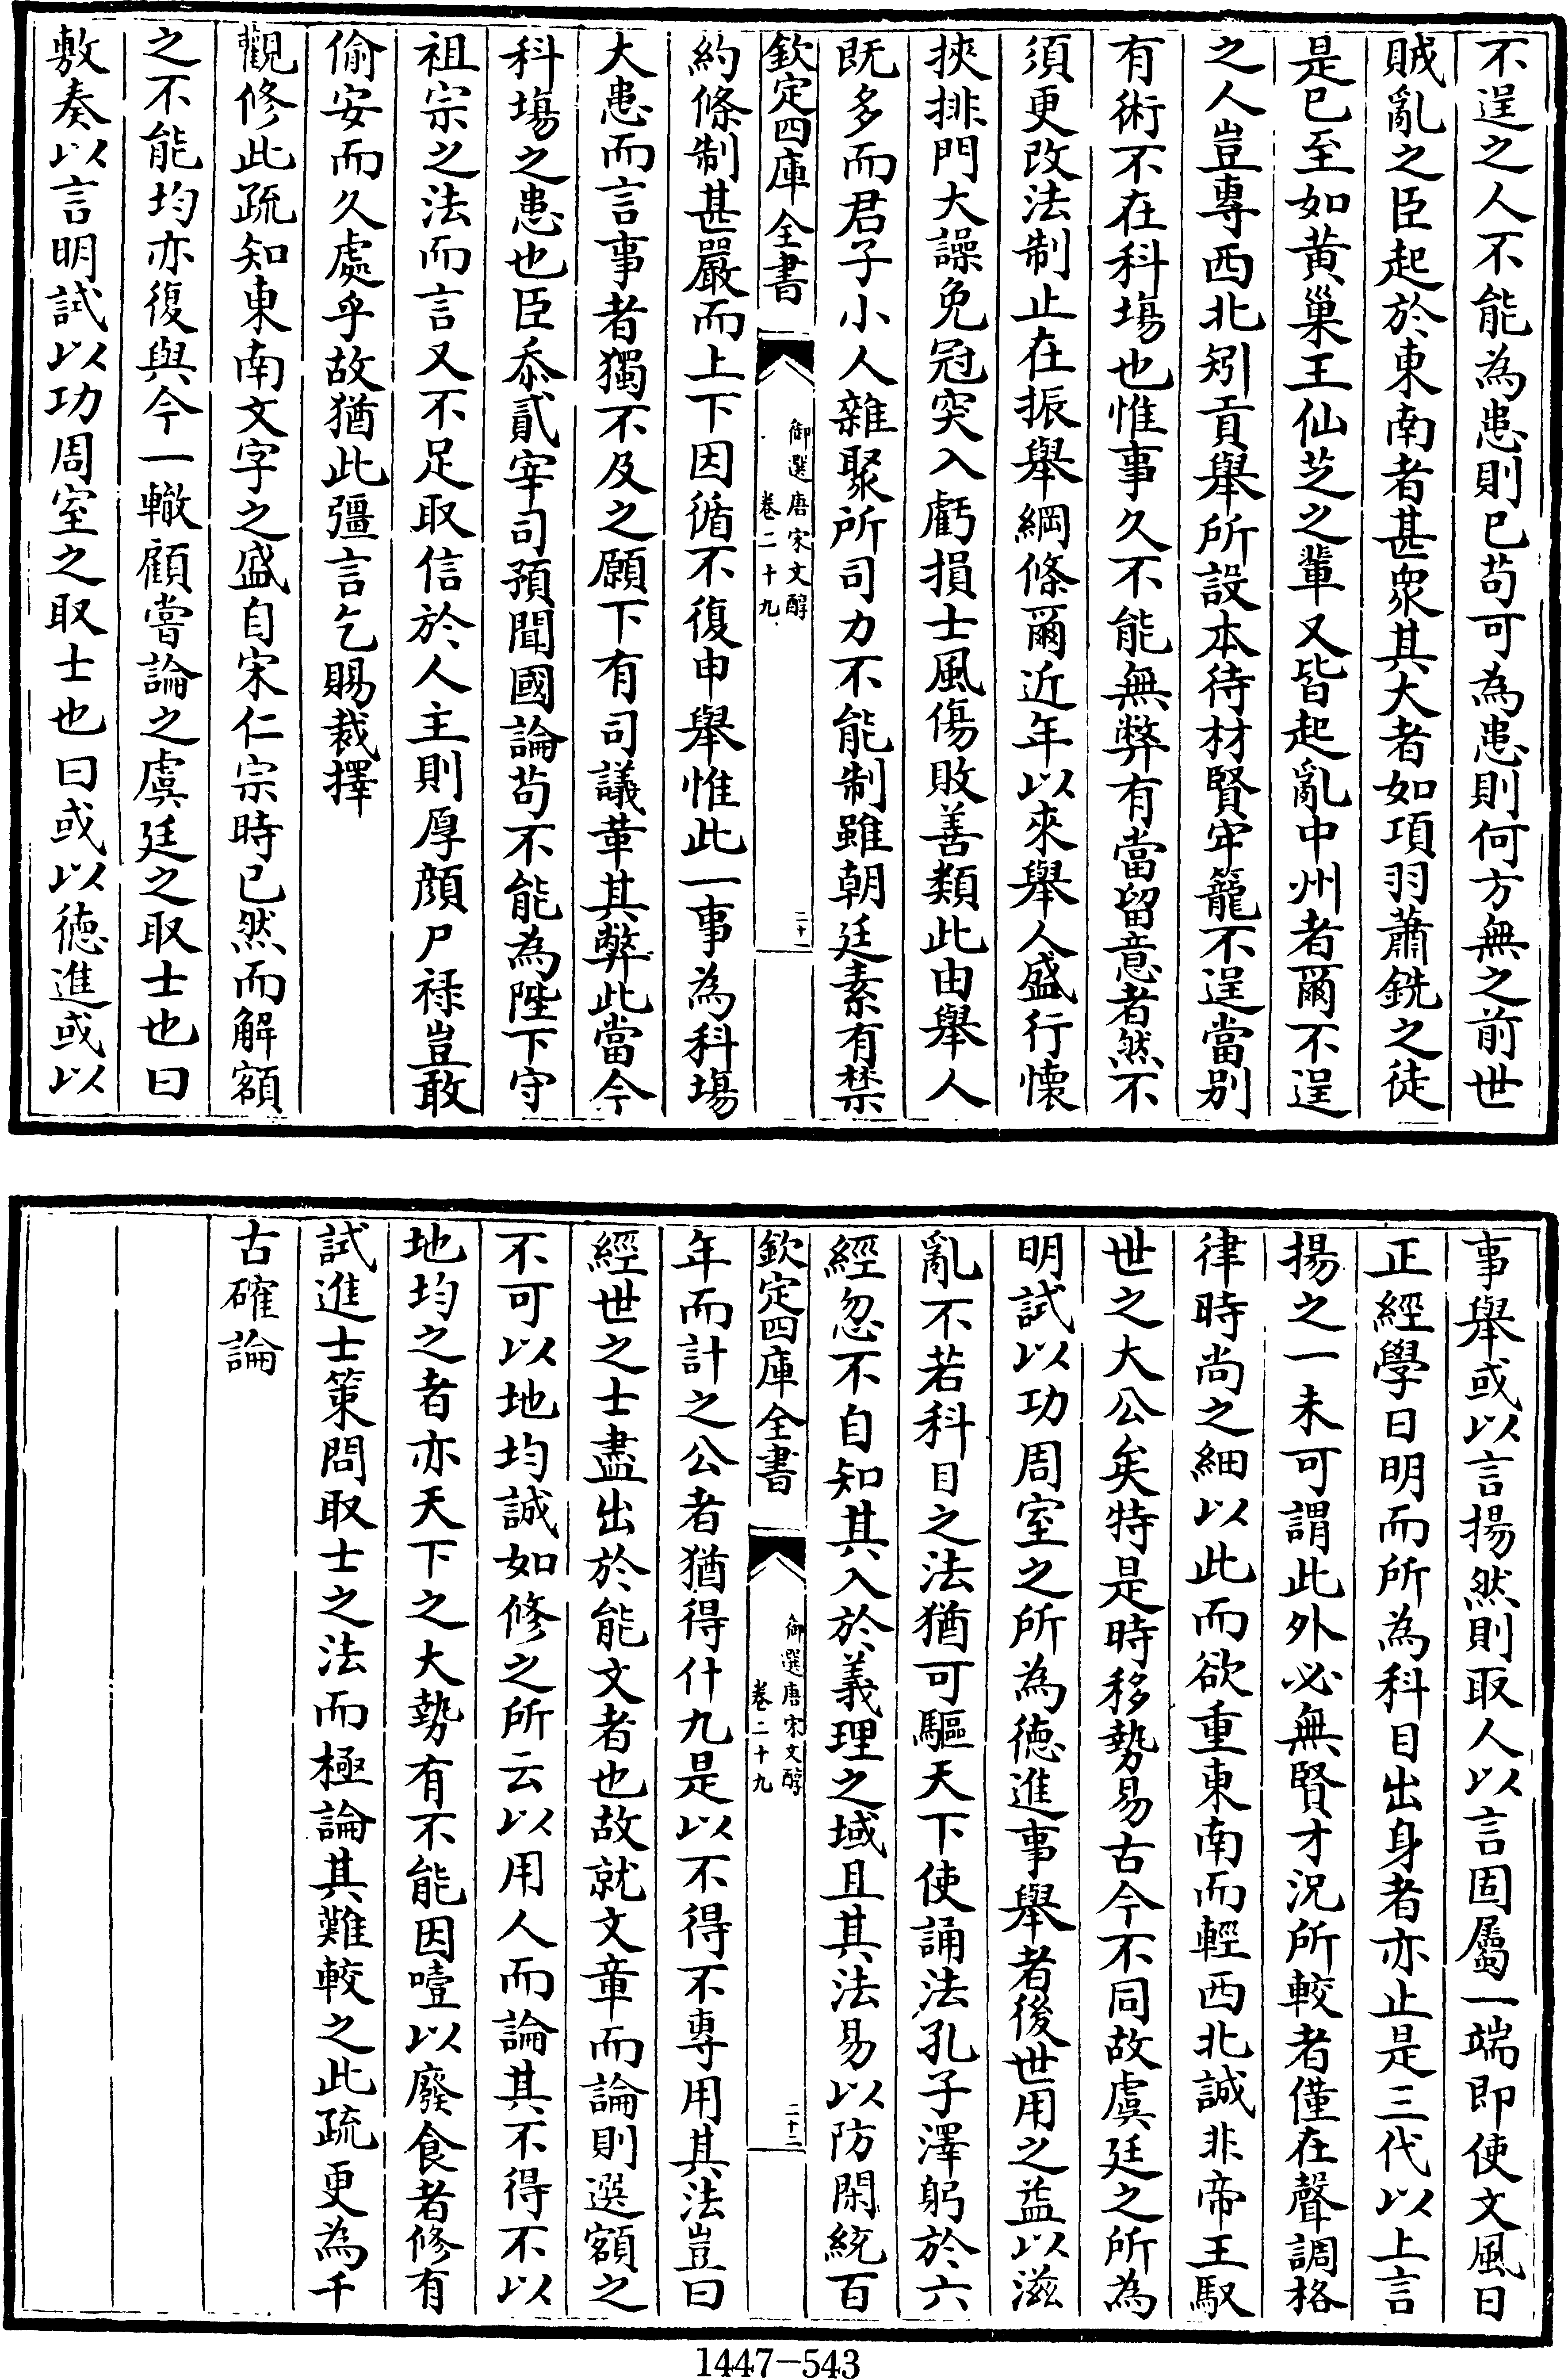 不逞之人不能為患則已茍可為患則何方無之前世
賊亂之臣起於東南者甚衆其大者如項羽蕭銑之徒
是已至如黄巢王仙芝之輩又皆起亂中州者爾不逞
之人豈專西北矧貢舉所設本待材賢牢籠不逞當别
有術不在科塲也惟事久不能無弊有當留意者然不
須更改法制止在振舉綱條爾近年以來舉人盛行懐
挾排門大譟免冠突入虧損士風傷敗善類此由舉人
既多而君子小人雜聚所司力不能制雖朝廷素有禁
欽定四庫全書
御選唐宋文醇
卷二十九
二十一
約條制甚嚴而上下因循不復申舉惟此一事為科塲
大患而言事者獨不及之願下有司議革其弊此當今
科塲之患也臣忝貳宰司預聞國論茍不能為陛下守
祖宗之法而言又不足取信於人主則厚顔尸禄豈敢
偷安而久處乎故猶此彊言乞賜裁擇
觀修此疏知東南文字之盛自宋仁宗時已然而解額
之不能均亦復與今一轍顧嘗論之虞廷之取士也曰
敷奏以言明試以功周室之取士也曰或以徳進或以
事舉或以言揚然則取人以言固屬一端即使文風日
正經學日明而所為科目出身者亦止是三代以上言
揚之一未可謂此外必無賢才況所較者僅在聲調格
律時尚之細以此而欲重東南而輕西北誠非帝王馭
世之大公矣特是時移勢易古今不同故虞廷之所為
明試以功周室之所為徳進事舉者後世用之益以滋
亂不若科目之法猶可驅天下使誦法孔子澤躬於六
經忽不自知其入於義理之域且其法易以防閑統百
欽定四庫全書
御選唐宋文醇
卷二十九
二十二
年而計之公者猶得什九是以不得不專用其法豈曰
經世之士盡出於能文者也故就文章而論則選額之
不可以地均誠如修之所云以用人而論其不得不以
地均之者亦天下之大勢有不能因噎以廢食者修有
試進士策問取士之法而極論其難較之此疏更為千
古確論
1447-543